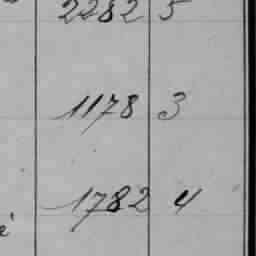 2282 5
1178 3
1782 4